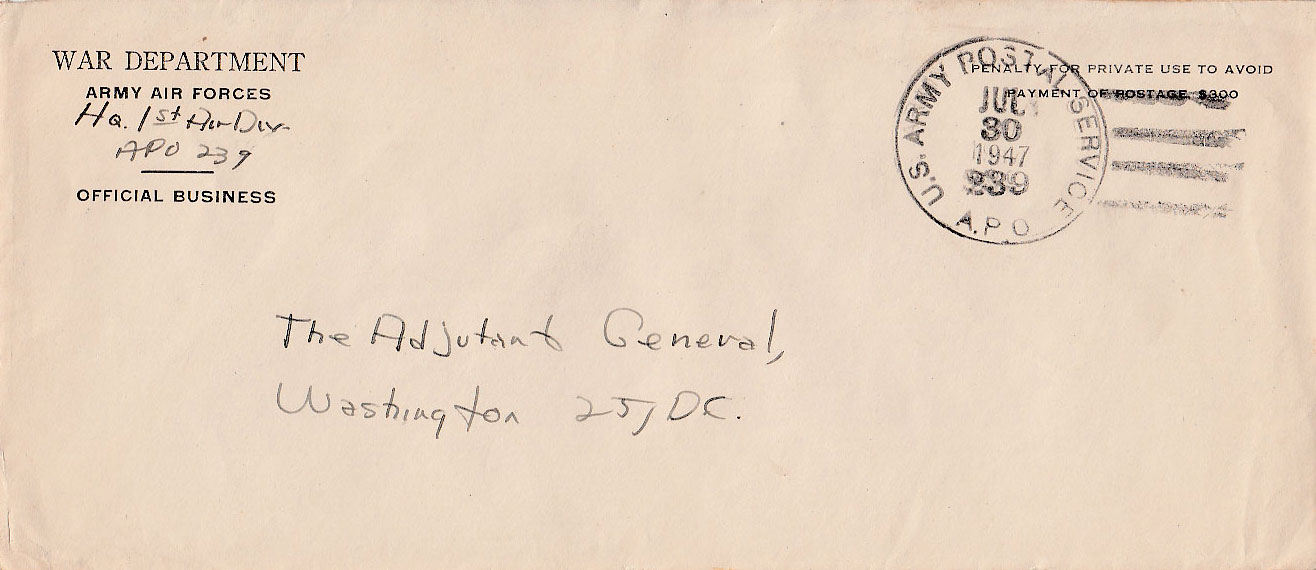 WAR DEPARTMENT
ARMY AIR FORCES
Hq. 1st Air Div.
APO 239
OFFICIAL BUSINESS
U.S. ARMY POSTAL SERVICE
JUL
30
1947
239
A.P.O
PENALTY FOR PRIVATE USE TO AVOID
PAYMENT OF POSTAGE, $300
The Adjutant General,
Washington 25, DC.